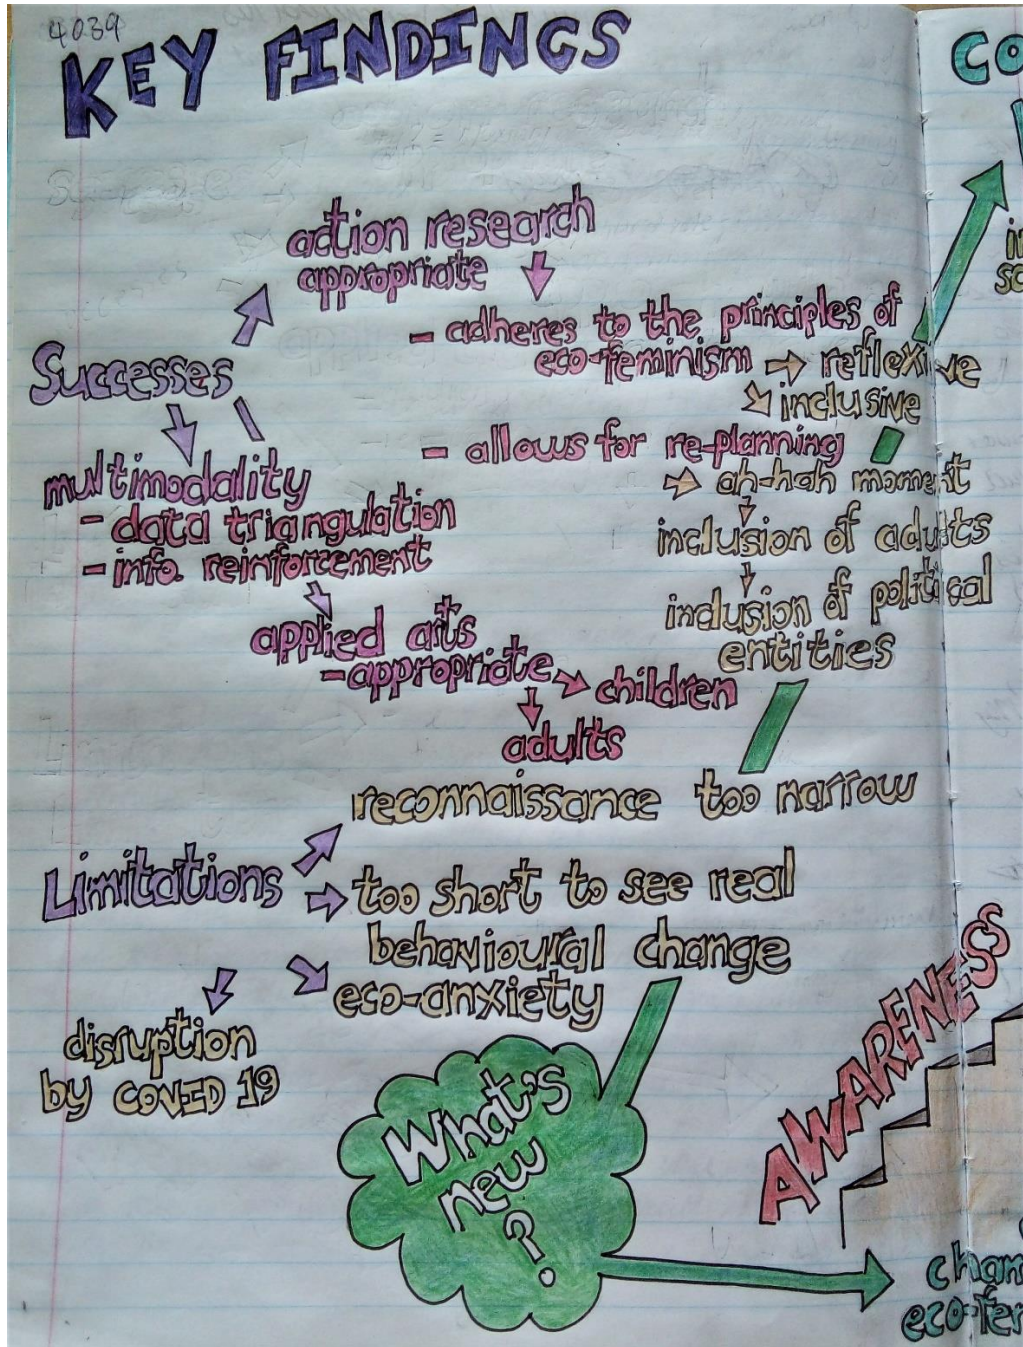 4039
KEY FINDINGS
action research
appropriate
- adheres to the principles of
eco-feminism → reflexive
inclusive
- allows for re-planning
→ ah-hah moment
inclusion of adults
inclusion of political
entities
Successes
multimodality
- data triangulation
- info. reinforcement
applied arts
- appropriate → children
adults
Limitations
reconnaissance too narrow
too short to see real
behavioural change
eco-anxiety
disruption
by COVID 19
What's
new
?
AWARENESS
CO